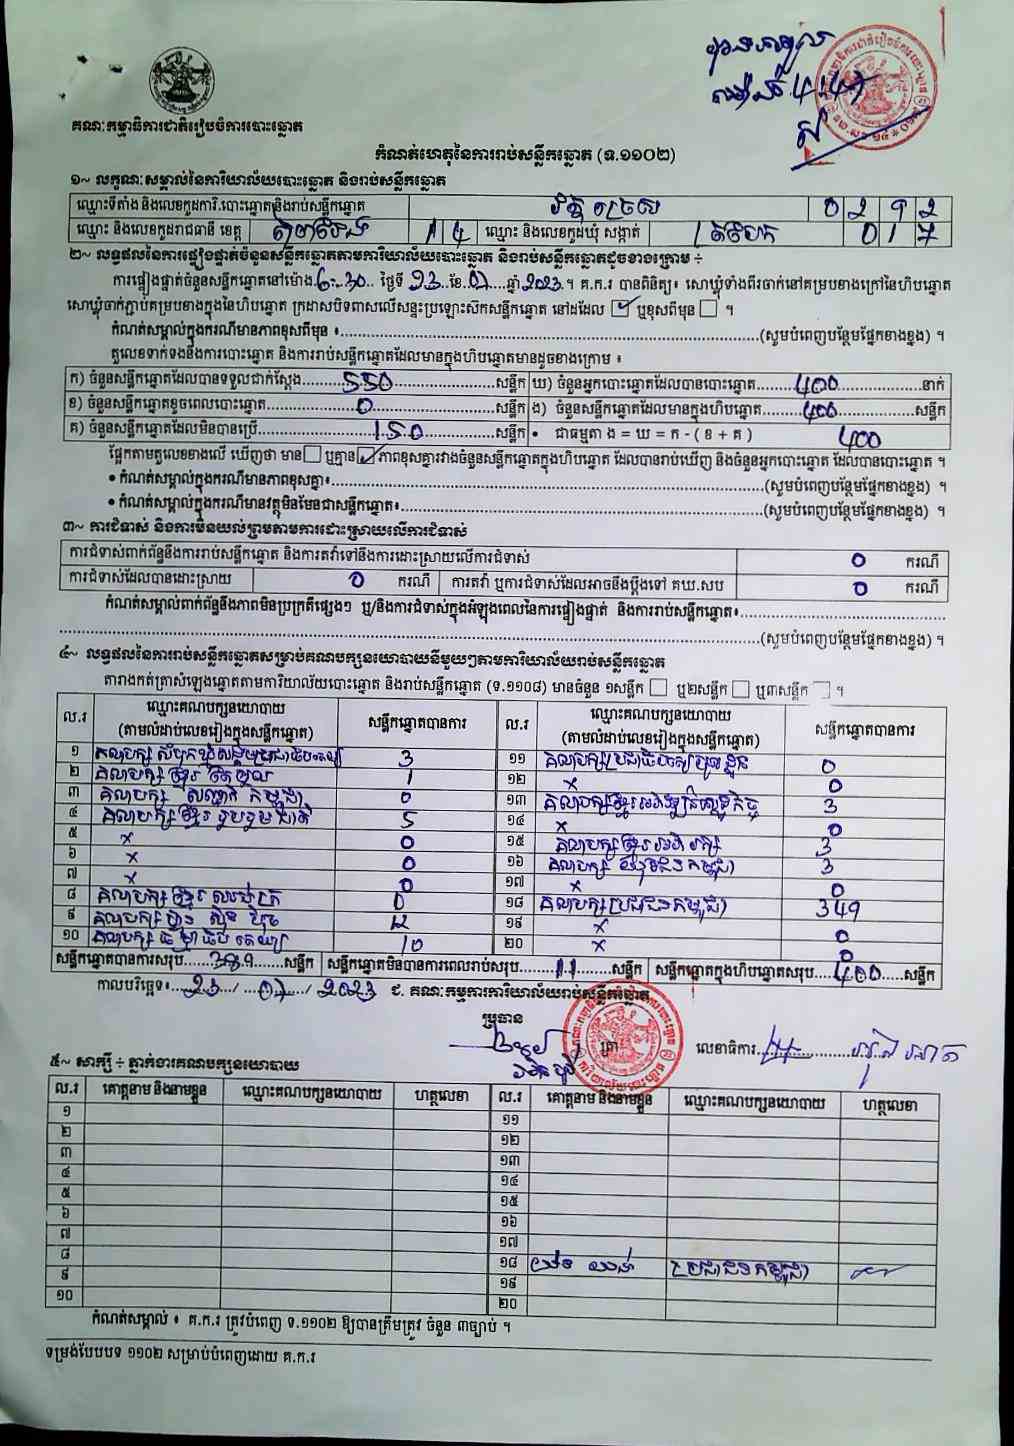 គណៈកម្មាធិការជាតិរៀបចំការបោះឆ្នោត
កំណត់ហេតុនៃការរាប់សន្លឹកឆ្នោត (ទ.១១០២)
១~ លក្ខណៈសម្គាល់នៃការិយាល័យបោះឆ្នោត និងរាប់សន្លឹកឆ្នោត
ឈ្មោះទីតាំង និងលេខកូដការិ.បោះឆ្នោតនិងរាប់សន្លឹកឆ្នោត 0 2 9 2
ឈ្មោះ និងលេខកូដរាជធានី ខេត្ត 1 4 ឈ្មោះ និងលេខកូដឃុំ សង្កាត់ 0 1 7
២~ លទ្ធផលនៃការផ្ទៀងផ្ទាត់ចំនួនសន្លឹកឆ្នោតតាមការិយាល័យបោះឆ្នោត និងរាប់សន្លឹកឆ្នោតដូចខាងក្រោម ÷
ការផ្ទៀងផ្ទាត់ចំនួនសន្លឹកឆ្នោតនៅម៉ោង 6:30 ថ្ងៃទី 23 ខែ 07 ឆ្នាំ 2023 ។ គ.ក.រ បានពិនិត្យ៖ សោឃ្លុំទាំងពីរចាក់នៅគម្របខាងក្រៅនៃហិបឆ្នោត
សោឃ្លុំចាក់ភ្ជាប់គម្របខាងក្នុងនៃហិបឆ្នោត ក្រដាសបិទពាសលើសន្ទះប្រឡោះសៀតសន្លឹកឆ្នោត នៅដដែល ឬខុសពីមុន ។
កំណត់សម្គាល់ក្នុងករណីមានភាពខុសពីមុន ៖ (សូមបំពេញបន្ថែមផ្នែកខាងខ្នង) ។
តួលេខទាក់ទងនឹងការបោះឆ្នោត និងការរាប់សន្លឹកឆ្នោតដែលមានក្នុងហិបឆ្នោតមានដូចខាងក្រោម ៖
ក) ចំនួនសន្លឹកឆ្នោតដែលបានទទួលជាក់ស្តែង 550 សន្លឹក ឃ) ចំនួនអ្នកបោះឆ្នោតដែលបានបោះឆ្នោត 400 នាក់
ខ) ចំនួនសន្លឹកឆ្នោតខូចពេលបោះឆ្នោត 0 សន្លឹក ង) ចំនួនសន្លឹកឆ្នោតដែលមានក្នុងហិបឆ្នោត 400 សន្លឹក
គ) ចំនួនសន្លឹកឆ្នោតដែលមិនបានប្រើ 150 សន្លឹក • ជាធម្មតា ង = ឃ = ក - ( ខ + គ ) 400
ផ្អែកតាមតួលេខខាងលើ ឃើញថា មាន ឬគ្មាន ភាពខុសគ្នារវាងចំនួនសន្លឹកឆ្នោតក្នុងហិបឆ្នោត ដែលបានរាប់ឃើញ និងចំនួនអ្នកបោះឆ្នោត ដែលបានបោះឆ្នោត ។
• កំណត់សម្គាល់ក្នុងករណីមានភាពខុសគ្នា៖ (សូមបំពេញបន្ថែមផ្នែកខាងខ្នង) ។
• កំណត់សម្គាល់ក្នុងករណីមានវត្ថុមិនមែនជាសន្លឹកឆ្នោត៖ (សូមបំពេញបន្ថែមផ្នែកខាងខ្នង) ។
៣~ ការជំទាស់ និងការមិនយល់ព្រមតាមការដោះស្រាយលើការជំទាស់
ការជំទាស់ពាក់ព័ន្ធនឹងការរាប់សន្លឹកឆ្នោត និងការតវ៉ាទៅនឹងការដោះស្រាយលើការជំទាស់ 0 ករណី
ការជំទាស់ដែលបានដោះស្រាយ 0 ករណី ការតវ៉ា ឬការជំទាស់ដែលអាចនឹងប្តឹងទៅ គឃ.សប 0 ករណី
កំណត់សម្គាល់ពាក់ព័ន្ធនឹងភាពមិនប្រក្រតីផ្សេងៗ ឬ/និងការជំទាស់ក្នុងអំឡុងពេលនៃការផ្ទៀងផ្ទាត់ និងការរាប់សន្លឹកឆ្នោត៖
(សូមបំពេញបន្ថែមផ្នែកខាងខ្នង) ។
៤~ លទ្ធផលនៃការរាប់សន្លឹកឆ្នោតសម្រាប់គណបក្សនយោបាយនីមួយៗតាមការិយាល័យរាប់សន្លឹកឆ្នោត
តារាងកត់ត្រាសំឡេងឆ្នោតតាមការិយាល័យបោះឆ្នោត និងរាប់សន្លឹកឆ្នោត (ទ.១១០៨) មានចំនួន ១សន្លឹក ឬ២សន្លឹក ឬ៣សន្លឹក ។
ល.រ ឈ្មោះគណបក្សនយោបាយ (តាមលំដាប់លេខរៀងក្នុងសន្លឹកឆ្នោត) សន្លឹកឆ្នោតបានការ ល.រ ឈ្មោះគណបក្សនយោបាយ (តាមលំដាប់លេខរៀងក្នុងសន្លឹកឆ្នោត) សន្លឹកឆ្នោតបានការ
១ គណបក្ស សំបុកឃ្មុំសង្គមប្រជាធិបតេយ្យ 3 ១១ 0
២ គណបក្ស ខ្មែរ តែមួយ 1 ១២ x 0
៣ គណបក្ស សញ្ជាតិ កម្ពុជា 0 ១៣ គណបក្សខ្មែរអភិវឌ្ឍន៍សេដ្ឋកិច្ច 3
៤ គណបក្ស ខ្មែរ រួបរួម ជាតិ 5 ១៤ x 0
៥ x 0 ១៥ គណបក្ស ខ្មែរ អភិរក្ស 3
៦ x 0 ១៦ គណបក្ស យុវជន កម្ពុជា 3
៧ x 0 ១៧ x 0
៨ គណបក្ស ខ្មែរ 0 ១៨ គណបក្សប្រជាជនកម្ពុជា 349
៩ គណបក្ស ហ្វ៊ុន ស៊ិន ប៉ិច 12 ១៩ x 0
១០ គណបក្ស ធម្មាធិបតេយ្យ 10 ២០ x 0
សន្លឹកឆ្នោតបានការសរុប 389 សន្លឹក សន្លឹកឆ្នោតមិនបានការពេលរាប់សរុប 11 សន្លឹក សន្លឹកឆ្នោតក្នុងហិបឆ្នោតសរុប 400 សន្លឹក
កាលបរិច្ឆេទ៖ 23 / 07 / 2023 ជ. គណៈកម្មការការិយាល័យរាប់សន្លឹកឆ្នោត
ប្រធាន
ត្រា លេខាធិការ
៥~ សាក្សី ÷ ភ្នាក់ងារគណបក្សនយោបាយ
ល.រ គោត្តនាម និងនាមខ្លួន ឈ្មោះគណបក្សនយោបាយ ហត្ថលេខា ល.រ គោត្តនាម និងនាមខ្លួន ឈ្មោះគណបក្សនយោបាយ ហត្ថលេខា
១ ១១
២ ១២
៣ ១៣
៤ ១៤
៥ ១៥
៦ ១៦
៧ ១៧
៨ ១៨ ប្រជាជនកម្ពុជា
៩ ១៩
១០ ២០
កំណត់សម្គាល់ ៖ គ.ក.រ ត្រូវបំពេញ ទ.១១០២ ឱ្យបានត្រឹមត្រូវ ចំនួន ៣ច្បាប់ ។
ទម្រង់បែបបទ ១១០២ សម្រាប់បំពេញដោយ គ.ក.រ